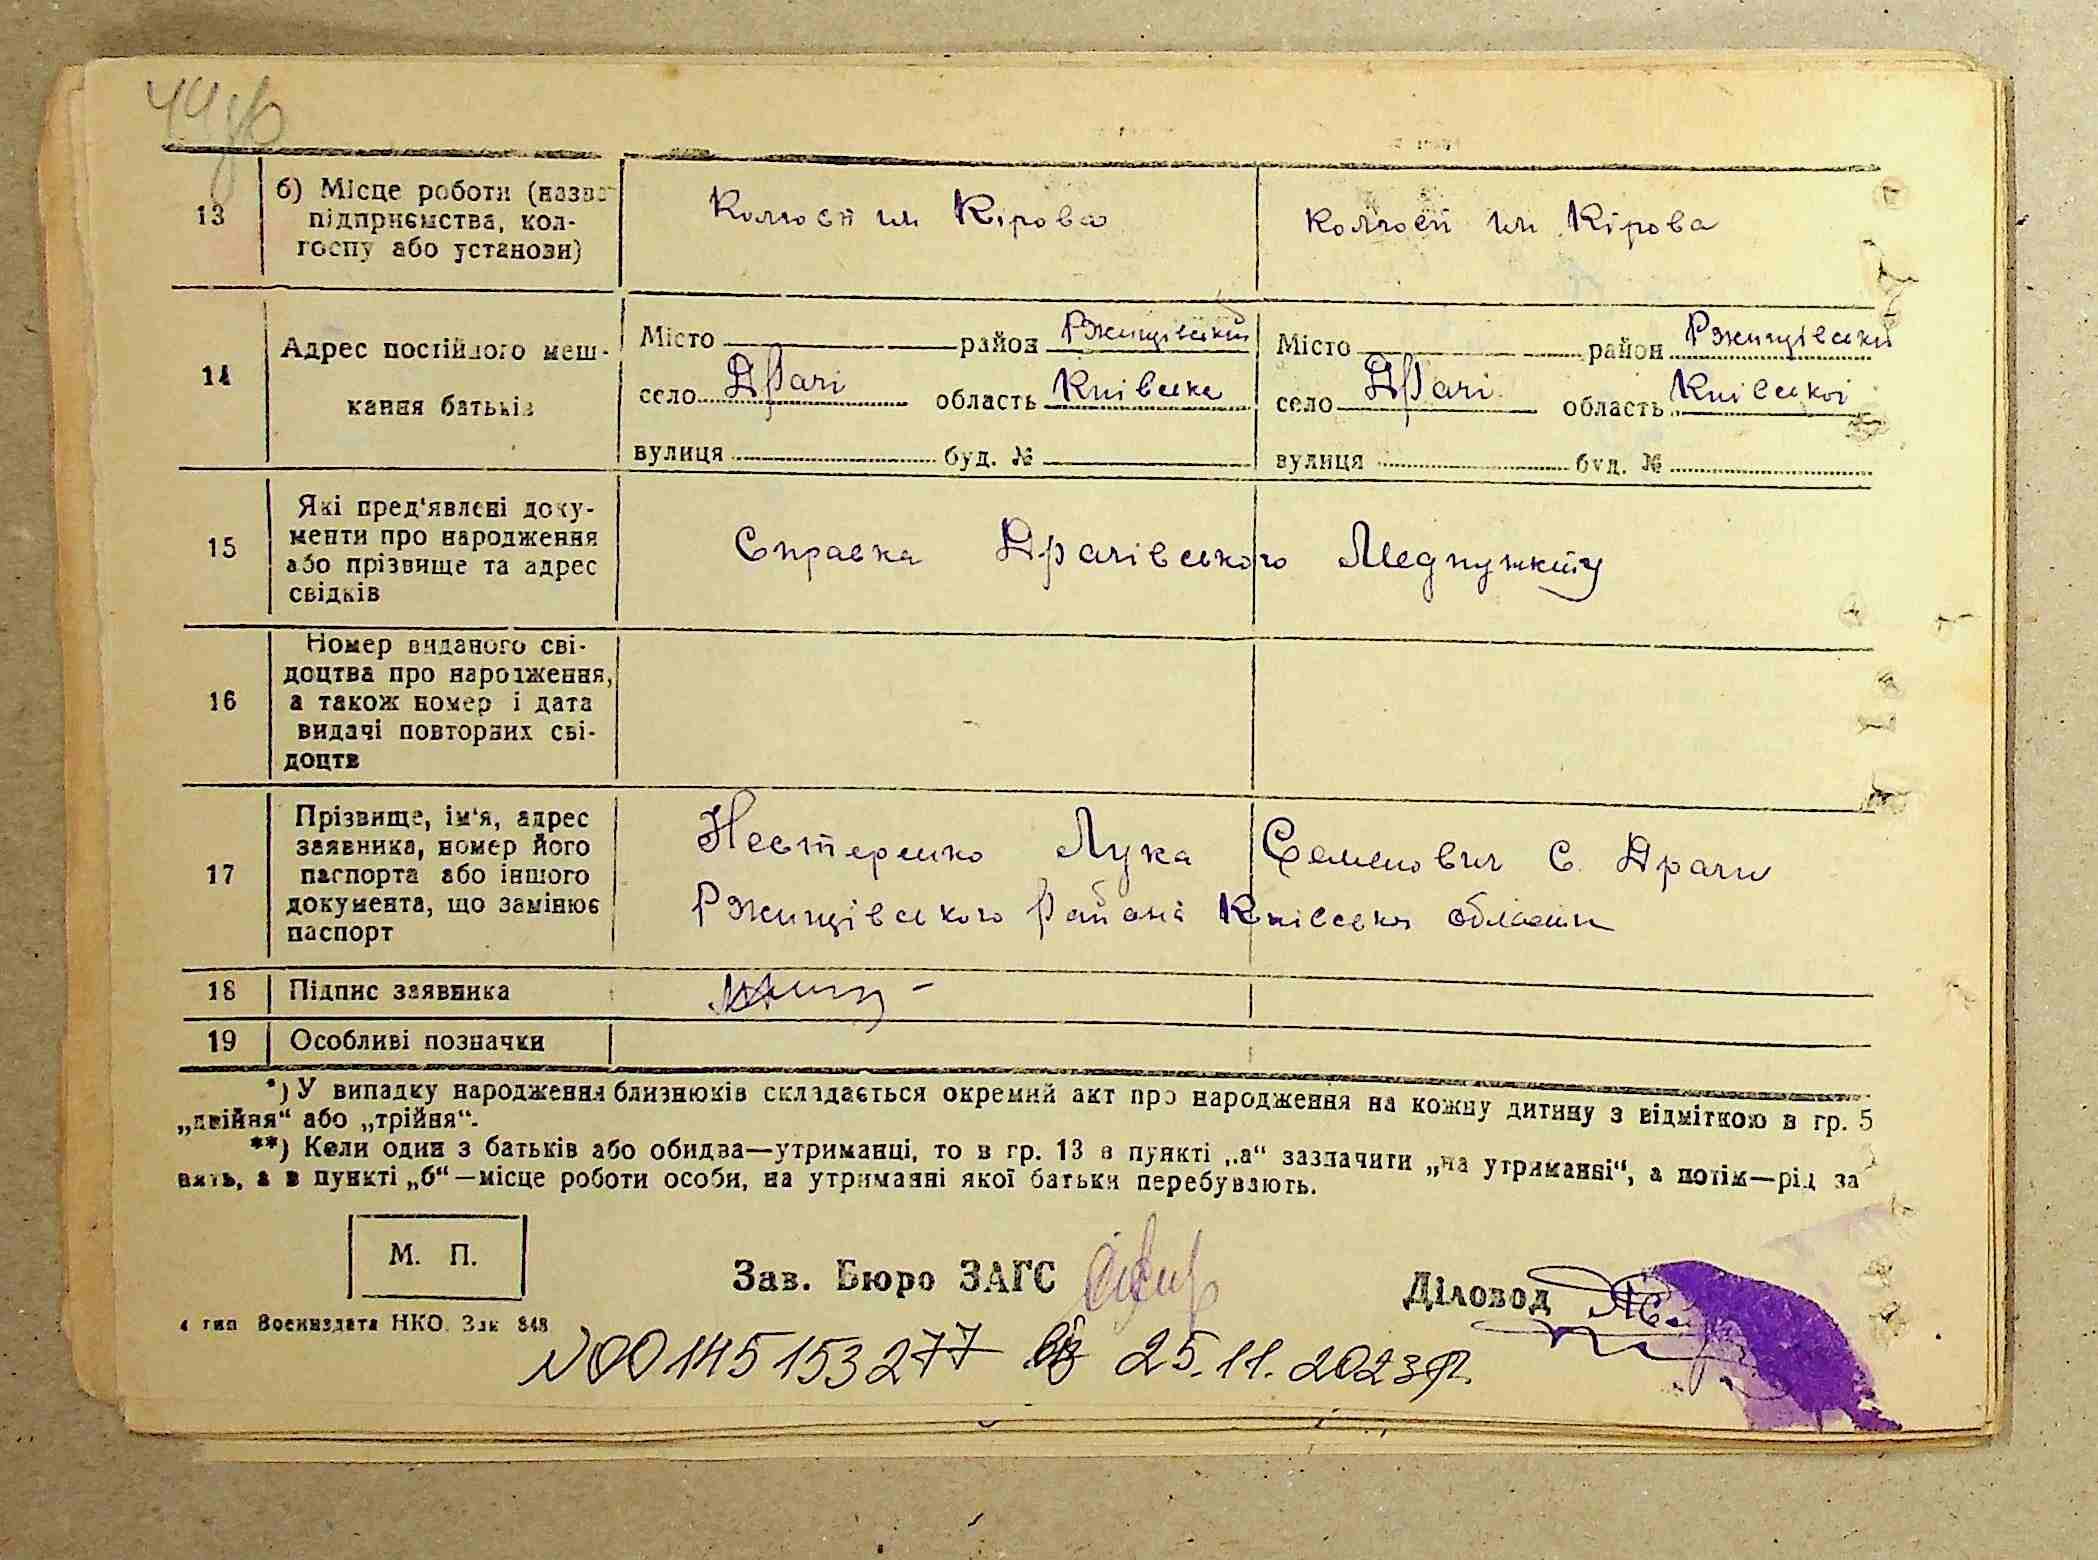 13
б) Місце роботи (назва
підприємства, кол-
госпу або установи)
Колгосп им Кірова
Колгосп им Кірова
14
Адрес постійного меш-
кання батьків
Місто район Ржищівський
село Драчі область Київська
вулиця буд. №
Місто район Ржищівськи
село Драчі область Київської
вулиця буд. №
15
Які пред'явлені доку-
менти про народження
або прізвище та адрес
свідків
Справка Драчівського Медпункту
16
Номер виданого сві-
доцтва про народження,
а також номер і дата
видачі повторних сві-
доцтв
17
Прізвище, ім'я, адрес
заявника, номер його
паспорта або іншого
документа, що замінює
паспорт
Нестеренко Лука Семенович С. Драчи
Ржищівського района Київська области
18
Підпис заявника
19
Особливі позначки
*) У випадку народження близнюків складається окремий акт про народження на кожну дитину з відміткою в гр. 5
„двійня“ або „трійня“.
**) Коли один з батьків або обидва—утриманці, то в гр. 13 в пункті „а“ зазначити „на утриманні“, а потім—рід за
нять, а в пункті „б“—місце роботи особи, на утриманні якої батьки перебувають.
М. П.
Зав. Бюро ЗАГС
Діловод
4 тип Воениздата НКО. Зак 848
№ 00145153277 від 25.11.2023р.